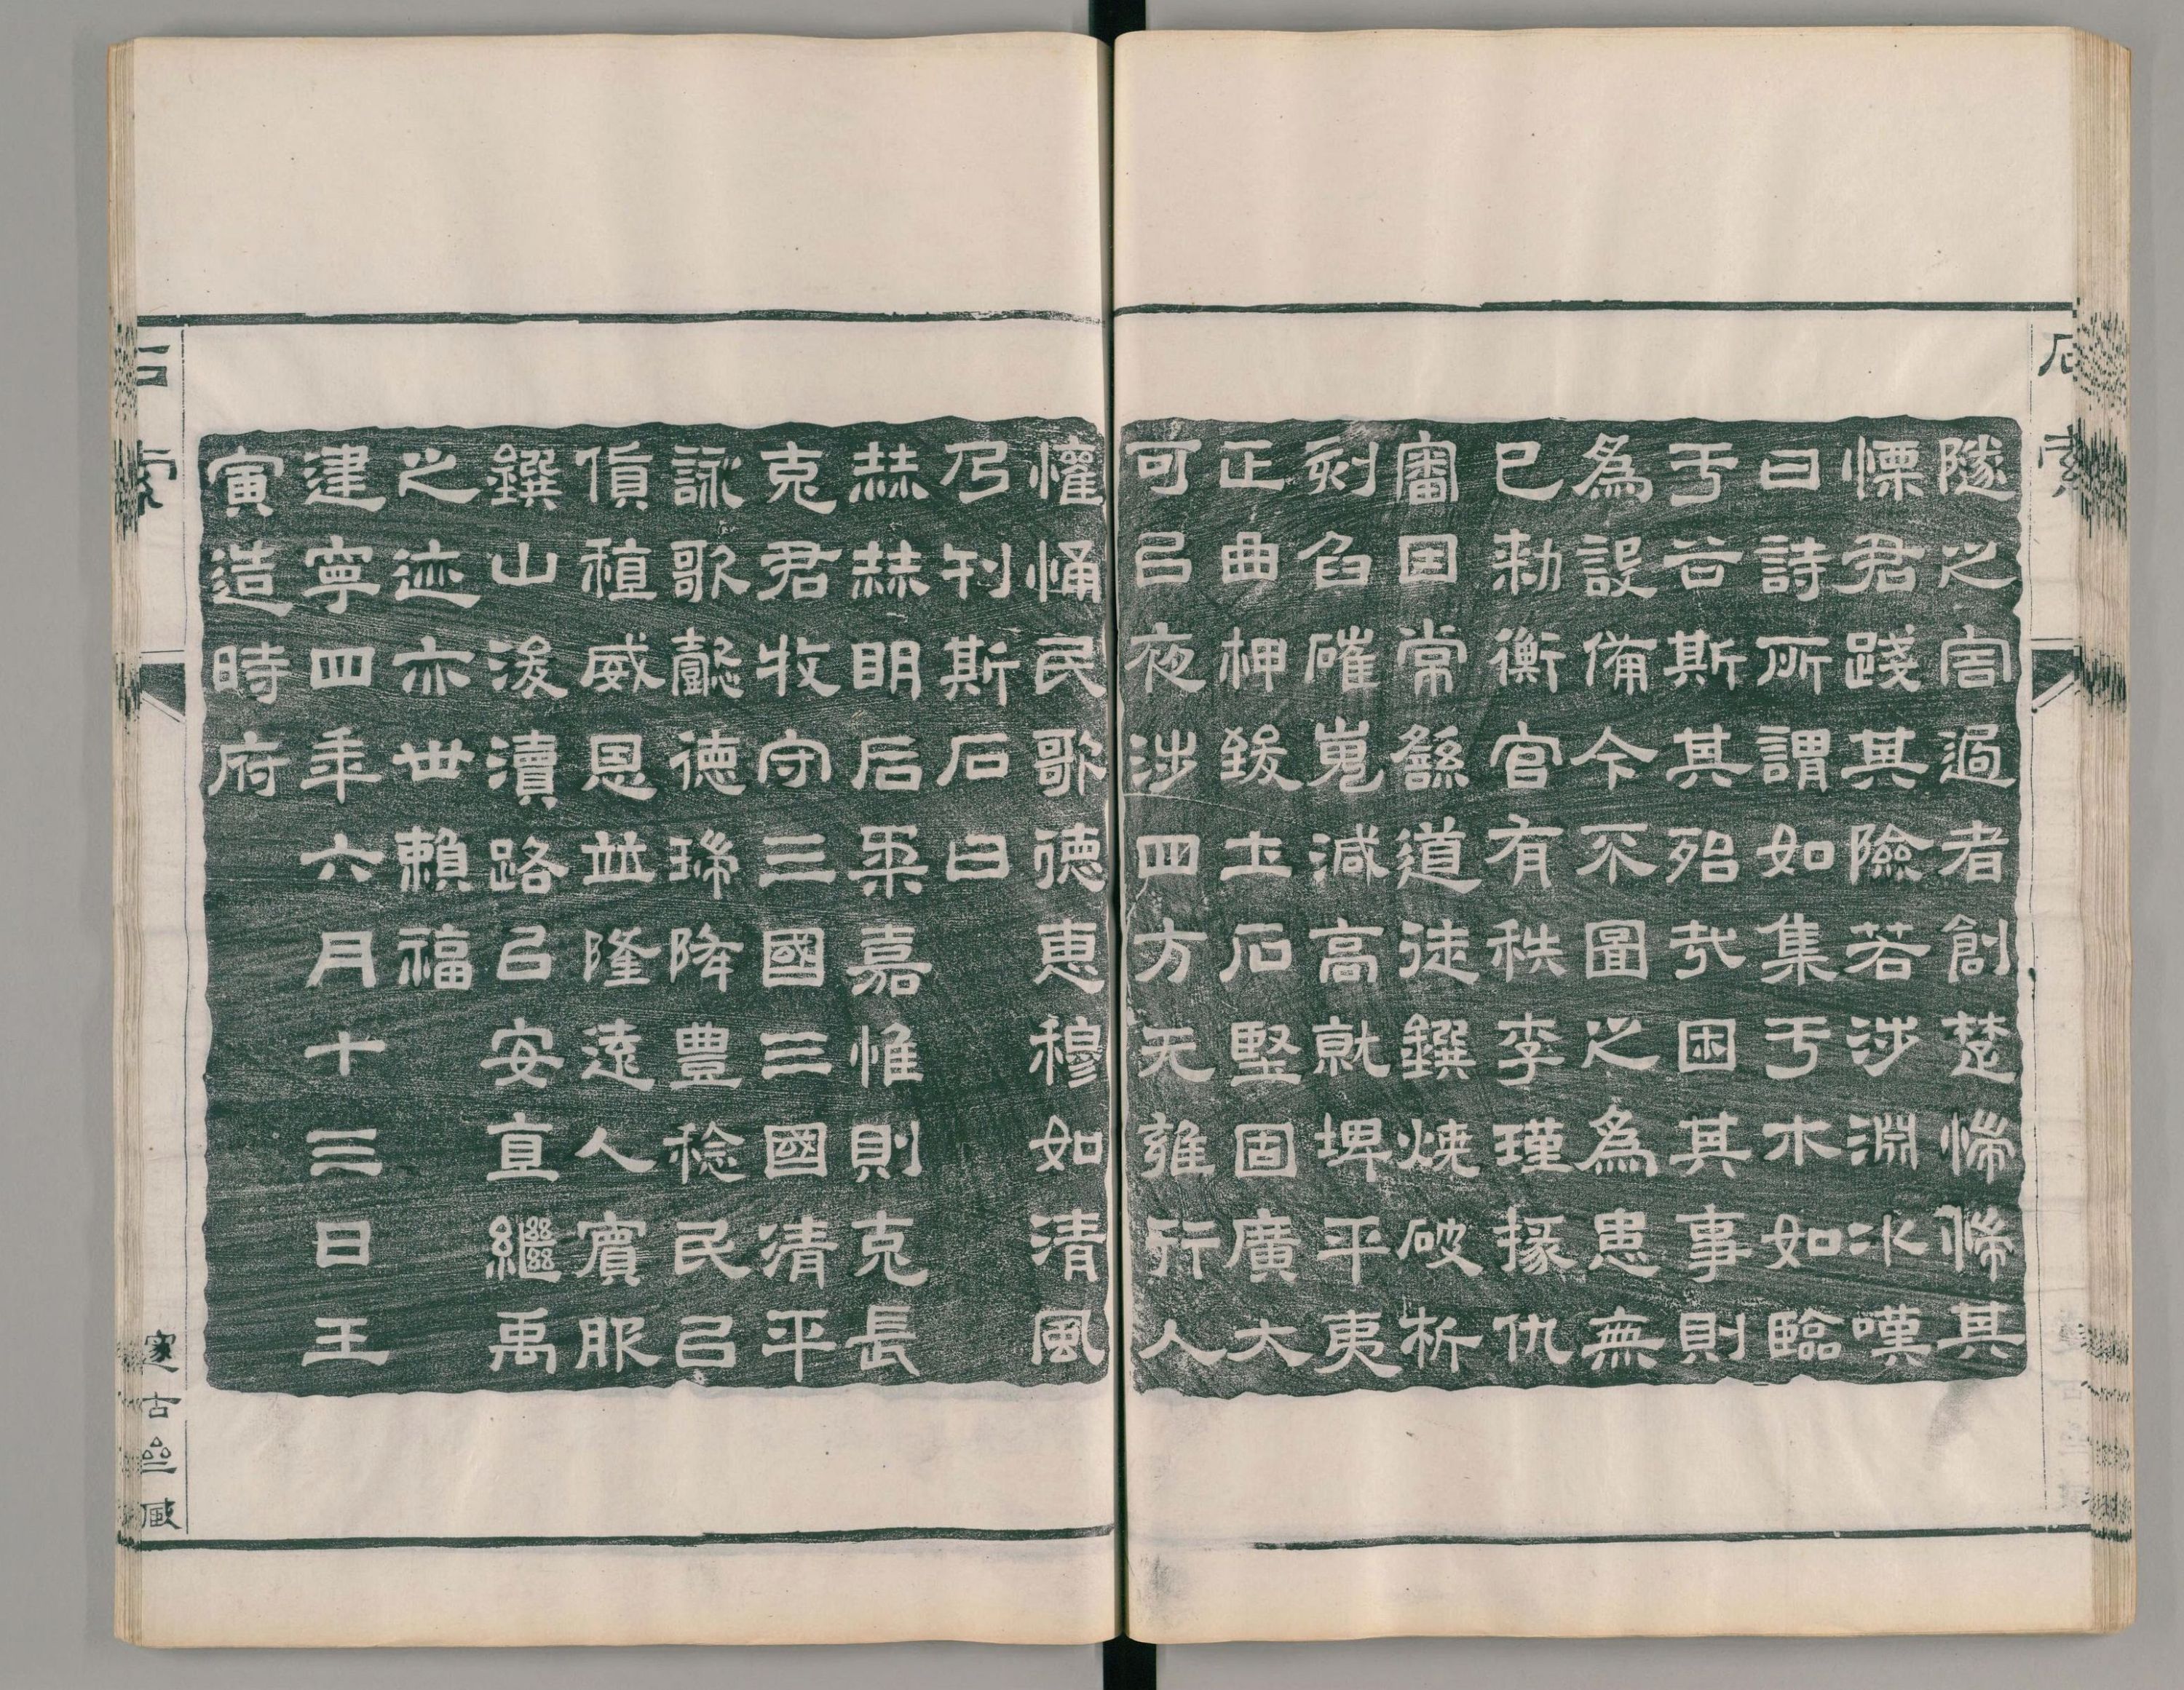 石索
隧之害過者創楚惴惴其
慄君踐其險若涉淵冰嘆
曰詩所謂如集于木如臨
于谷斯其殆哉困其事則
為設備今不圖之為患無
已勑衡官有秩李瑾掾仇
審因常繇道徒鐉燒破析
刻臽磪嵬減高就埤平夷
正曲柙致土石堅固廣大
可以夜涉四方无雍行人
懽悀民歌德惠穆如清風
乃刊斯石曰
赫赫明后柔嘉惟則克長
克君牧守三國三國清平
詠歌懿德瑞降豐稔民以
貨稙威恩並隆遠人賓服
鐉山浚瀆路以安直繼禹
之迹亦世賴福
建寧四年六月十三日壬
寅造時府
石索
邃古齋藏